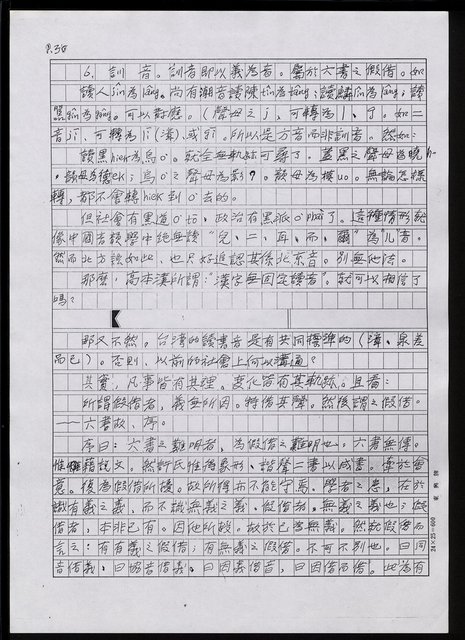 P.30
6. 訓音。訓音即以義為音。屬於六書之假借。如
讀人jîn為lâng。尚有潮音讀陳tîn為tâng;讀鱗lîn為lâng;讀
為lâng。可以對應。(聲母之j,可轉為l、
音jī,可轉為lī(漳)或jī。所以是方音而非訓音。然如:
讀黑hiek為烏o͘。就全無軌跡可尋了。蓋黑之聲母為曉h-
,韻母為德ek;烏o͘之聲母為影?。韻母為模uo。無論怎樣
轉,都不會轉hiek到o͘去的。
但社會有黑道o͘ tō,政治有黑派o͘ phài了。這種情形就
像中國古韻學中絕無讀“兒、二、耳、而、爾”為“儿”音。
然而北方話如此,也只好追認其係北京音。別無他法。
那麼,高本漢所謂:“漢字無固定讀音”。就可以相信了
嗎?
那又不然。台灣的讀書音是有共同標準的(漳、泉差
而已)。否則,以前的社會上何以溝通?
其實,凡事皆有其理。變化皆有其軌跡。且看:
所謂假借者,義無所因。特借其聲。然後謂之假借。
——六書故、序。
序曰:六書之難明者,為假借之難明也。六書無傳。
惟藉說文。然許氏惟得象形、諧聲二書以成書。牽於會
意。復為假借所擾。故所得亦不能守焉。學者之患,在於
識有義之義,而不識無義之義。假借者。無義之義也;假
借者,本非己有。因他所授。故於己為無義。然就假借而
言之:有有義之假借;有無義之假借。不可不別也。曰同
音借義、曰協音借義、曰因義借音,曰因借而借。此為有
24×25=600